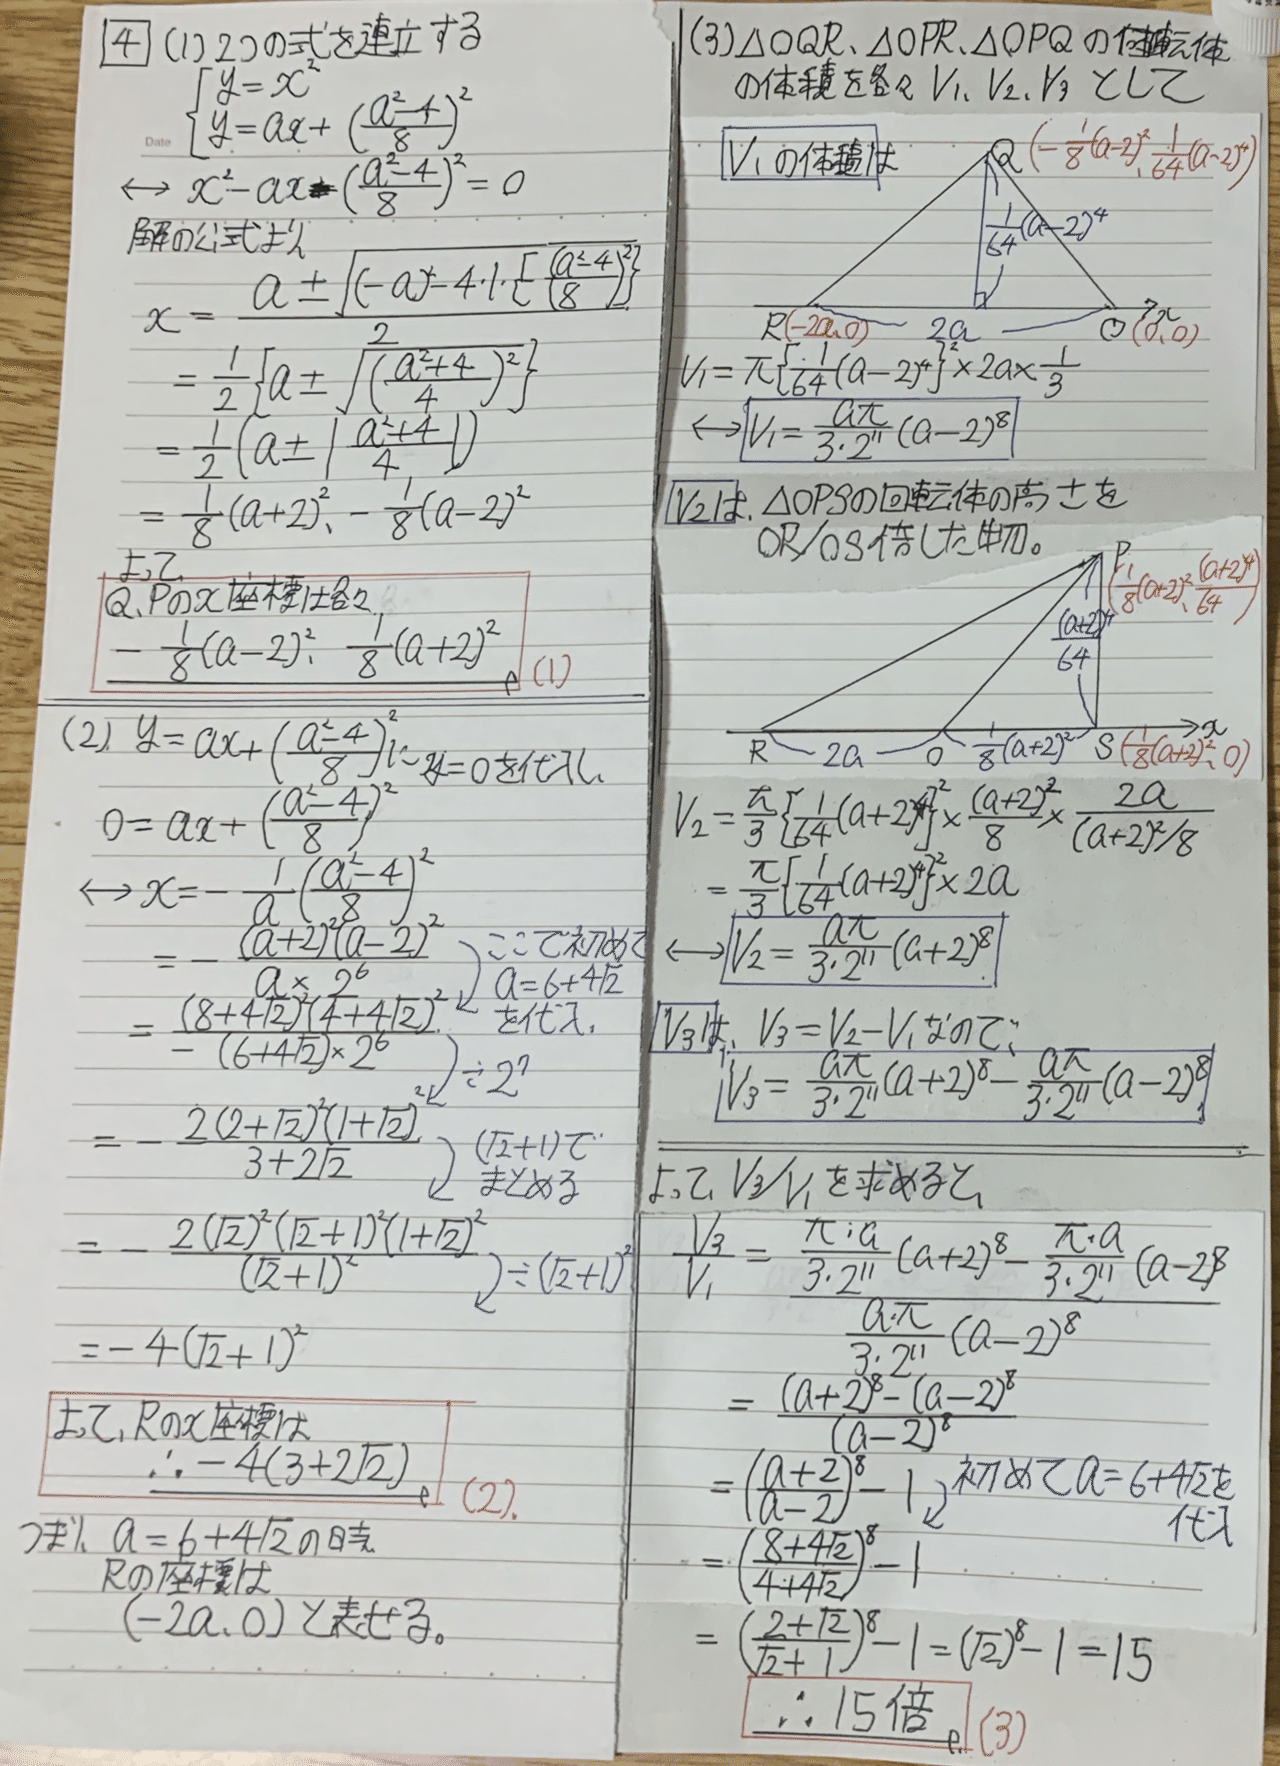 4 (1) 2つの式を連立する
Date
{ y = x²
y = ax + ((a²-4)/8)²
↔ x² - ax - ((a²-4)/8)² = 0
解の公式より
x = (a ± √((-a)² - 4・1・{-((a²-4)/8)²})) / 2
= 1/2 {a ± √(((a²+4)/4)²)}
= 1/2 (a ± |(a²+4)/4|)
= 1/8 (a+2)²、 - 1/8 (a-2)²
よって、
Q、Pのx座標は各々
- 1/8 (a-2)²、 1/8 (a+2)² (1)
(2) y = ax + ((a²-4)/8)² に y=0を代入し
0 = ax + ((a²-4)/8)²
↔ x = - 1/a ((a²-4)/8)²
= - (a+2)²(a-2)² / (a × 2⁶)
ここで初めて
a = 6+4√2
を代入、
= (8+4√2)²(4+4√2)² / -(6+4√2)×2⁶
÷2⁷
= - 2(2+√2)²(1+√2)² / (3+2√2)
(√2+1)で
まとめる
= - 2(√2)²(√2+1)²(1+√2)² / (√2+1)²
÷(√2+1)²
= -4(√2+1)²
よって、Rのx座標は
∴ -4(3+2√2) (2)
つまり、a = 6+4√2の時
Rの座標は
(-2a、0) と表せる。
(3) △OQR、△OPR、△OPQの回転体
の体積を各々 V₁、V₂、V₃ として
V₁の体積は
Q (-1/8 (a-2)²、1/64 (a-2)⁴)
1/64 (a-2)⁴
R (-2a、0) 2a O (0、0) x
V₁ = π{1/64 (a-2)⁴}² × 2a × 1/3
↔ V₁ = aπ/(3・2¹¹) (a-2)⁸
V₂は、△OPSの回転体の高さを
OR/OS倍した物。
P (1/8 (a+2)²、(a+2)⁴/64)
(a+2)⁴/64
R 2a O 1/8 (a+2)² S (1/8 (a+2)²、0) x
V₂ = π/3 {1/64 (a+2)⁴}² × (a+2)²/8 × 2a/((a+2)²/8)
= π/3 {1/64 (a+2)⁴}² × 2a
↔ V₂ = aπ/(3・2¹¹) (a+2)⁸
V₃は、V₃ = V₂ - V₁なので、
V₃ = aπ/(3・2¹¹) (a+2)⁸ - aπ/(3・2¹¹) (a-2)⁸
よって、V₃/V₁ を求めると、
V₃/V₁ = (π・a/(3・2¹¹) (a+2)⁸ - π・a/(3・2¹¹) (a-2)⁸) / (a・π/(3・2¹¹) (a-2)⁸)
= ((a+2)⁸ - (a-2)⁸) / (a-2)⁸
= ((a+2)/(a-2))⁸ - 1
初めて a = 6+4√2を
代入
= ((8+4√2)/(4+4√2))⁸ - 1
= ((2+√2)/(√2+1))⁸ - 1 = (√2)⁸ - 1 = 15
∴ 15倍 (3)